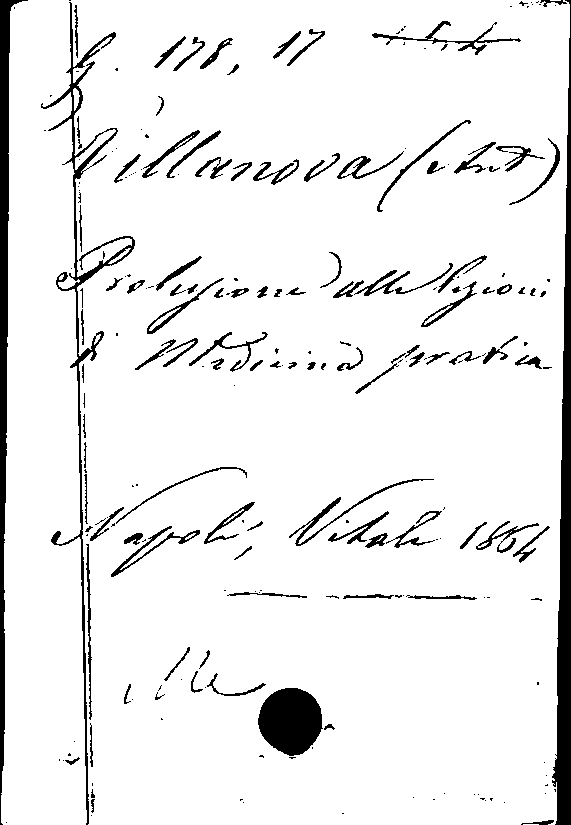 G. 178, 17
Villanova (Ant)
Prolusione alle lezioni
di Medicina pratica
Napoli, Vitale 1864